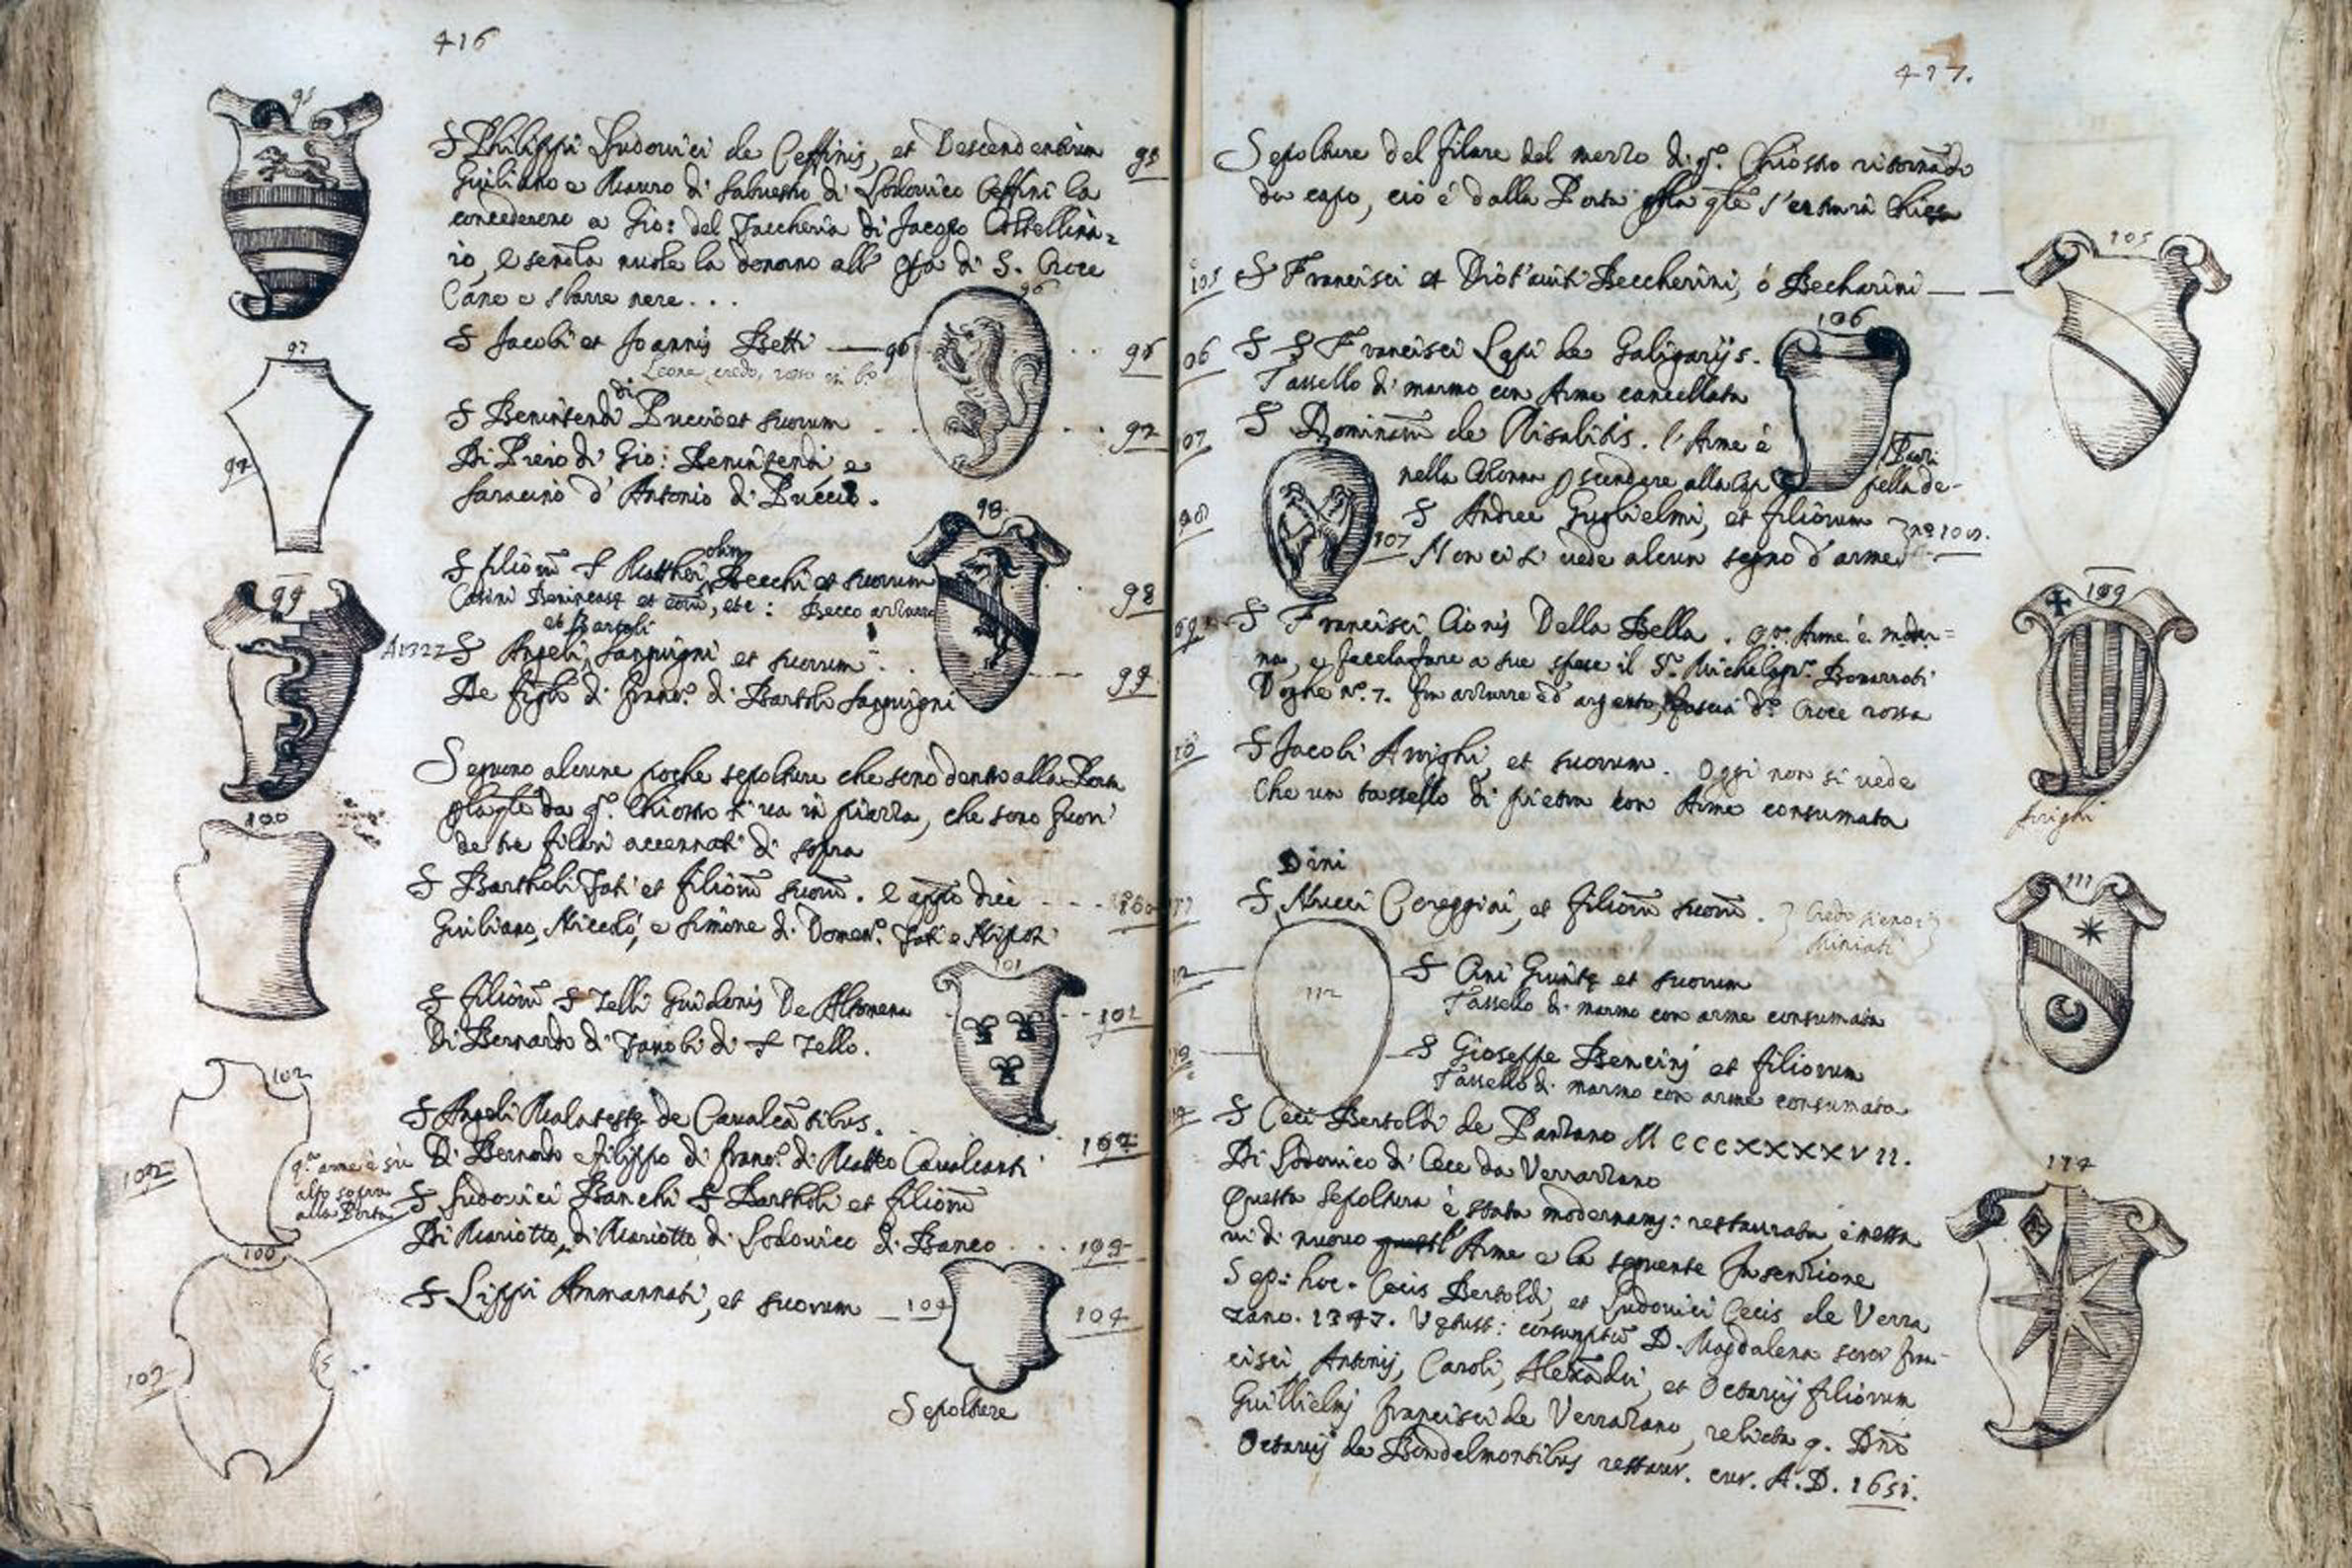 416
95
S Philippi Ludovici de Ceffinis, et Descendentium 95
Giuliano e Mauro di Salvestro di Lodovico Ceffini la
concederono a Gio: del Zaccheria di Jacopo Coltellina=
io, e la donorno all' di S. Croce
Cane e sbarre nere...
96
S Jacobi et Joannis Betti — 96 .. 96
Leone, credo, rosso in
97
S Benintendi di Puccio et suorum .. 97
97
Di Piero di Gio: Benintendi e
Saracino d'Antonio di Puccio.
98
S filior̄ S Matthei olim Becchi et suorum . 98
Casini Benincasę et eorū, etc: Becco azzurro
99
et Bartoli
A 1327 S Angeli Sanguigni et suorum .. 99
De figli di Franc.º di Bartolo Sanguigni
Seguono alcune poche sepolture che sono dentro alla Porta
da q.º Chiostro si va in piazza, che sono fuori
de tre filari accennati di sopra
100
S Bartholi Fati et filior̄ suor̄. e app̄o dice --- 100
Giuliano, Niccolò, e Simone di Domen.º Fati e Nipoti
101
S filior̄ S Telli Guidonis De Altomena --- 101
Di Bernardo di Zanobi di S Tello.
102
S Angeli Malatestę de Cavalcātibus. . 102
102
q.ª arme è sù
alto sopra
alla Porta
Di Bernardo e Filippo di Franc.º di Matteo Cavalcanti
S Ludovici Banchi S Bartholi et filior̄
Di Mariotto, di Mariotto di Lodovico di Banco .. 103
S Lippi Ammannati, et suorum — 104 104
103
Sepolture
417.
Sepolture del filare del mezzo di q.º Chiostro ritornādo
da capo, ciò è dalla Porta q̄le s'entra in Chiesa
105 S Francisci et Beccherini, ò Becharini — — 105
06 S S Francisci Lapi de Galigariis. 106
Tassello di marmo con Arme cancellata
07 S Dominor̄ de Risalitis. l'Arme è
nella Colonna p scendere alla Cap
pella de-
Pazzi
107
S Andree Guglielmi, et filiorum nº 108.
Non ci si vede alcun segno d'arme
109
S Francisci Cionis Della Bella. q.ª Arme è moder=
na, e fecela fare a sue spese il S.r Michelag.º Bonarroti
Doghe nº. 7. fra azzurre ed argento, fascia d.º Croce rossa
10 S Jacobi Arrighi, et suorum. Oggi non si vede
Che un tassello di pietra con Arme consumata
Arrighi
Dini
S Nucci Cereggini, et filior̄ suor̄. Credo sieno i
Miniati
111
12 S Cini Giuntę et suorum
112
Tassello di marmo con arme consumata
S Gioseffe Bencini et filiorum
Tassello di marmo con arme consumata
14 S Ceci Bertoldi de Panzano M CCCXXXXVII.
Di Lodovico di Cece da Verrazzano
114
Questa Sepoltura è stata modernamẽ: restaurata, e messa
vi di nuovo l'Arme e la seguente Inscrizione
Sep: hoc. Cecis Bertoldi, et Ludovici Cecis de Verra
zano. 1347. Vetust: consumptū D. Magdalena soror Fran-
cisci, Antonij, Caroli, Alexādri, et Octavij filiorum
Guillielmi Francisci de Verrazano, relicta q. Dñi
Octavij de Bondelmontibus restaur. cur. A.D. 1651.